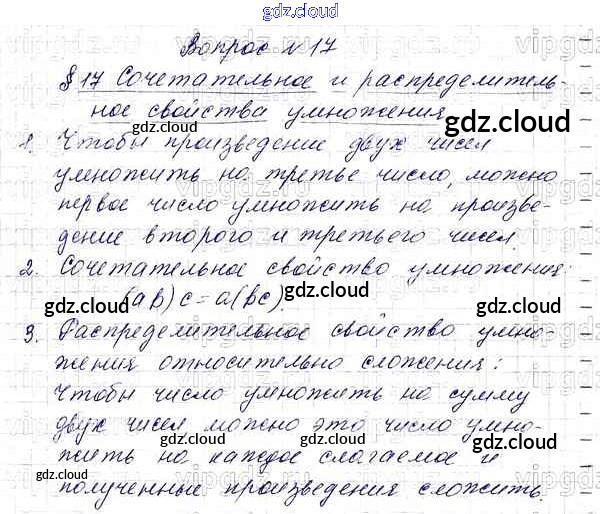 gdz.cloud
Вопрос №17
§17 Сочетательное и распределитель-
ное свойства умножения
gdz.cloud
gdz.cloud
1. Чтобы произведение двух чисел
умножить на третье число, можно
gdz.cloud
gdz.cloud
первое число умножить на произве-
дение второго и третьего чисел.
gdz.cloud
2. Сочетательное свойство умножения:
(ab)c=a(bc).
gdz.cloud
gdz.cloud
3. Распределительное свойство умно-
жения относительно сложения:
gdz.cloud
Чтобы число умножить на сумму
двух чисел можно это число умно-
gdz.cloud
жить на каждое слагаемое и
gdz.cloud
gdz.cloud
полученные произведения сложить.
gdz.cloud